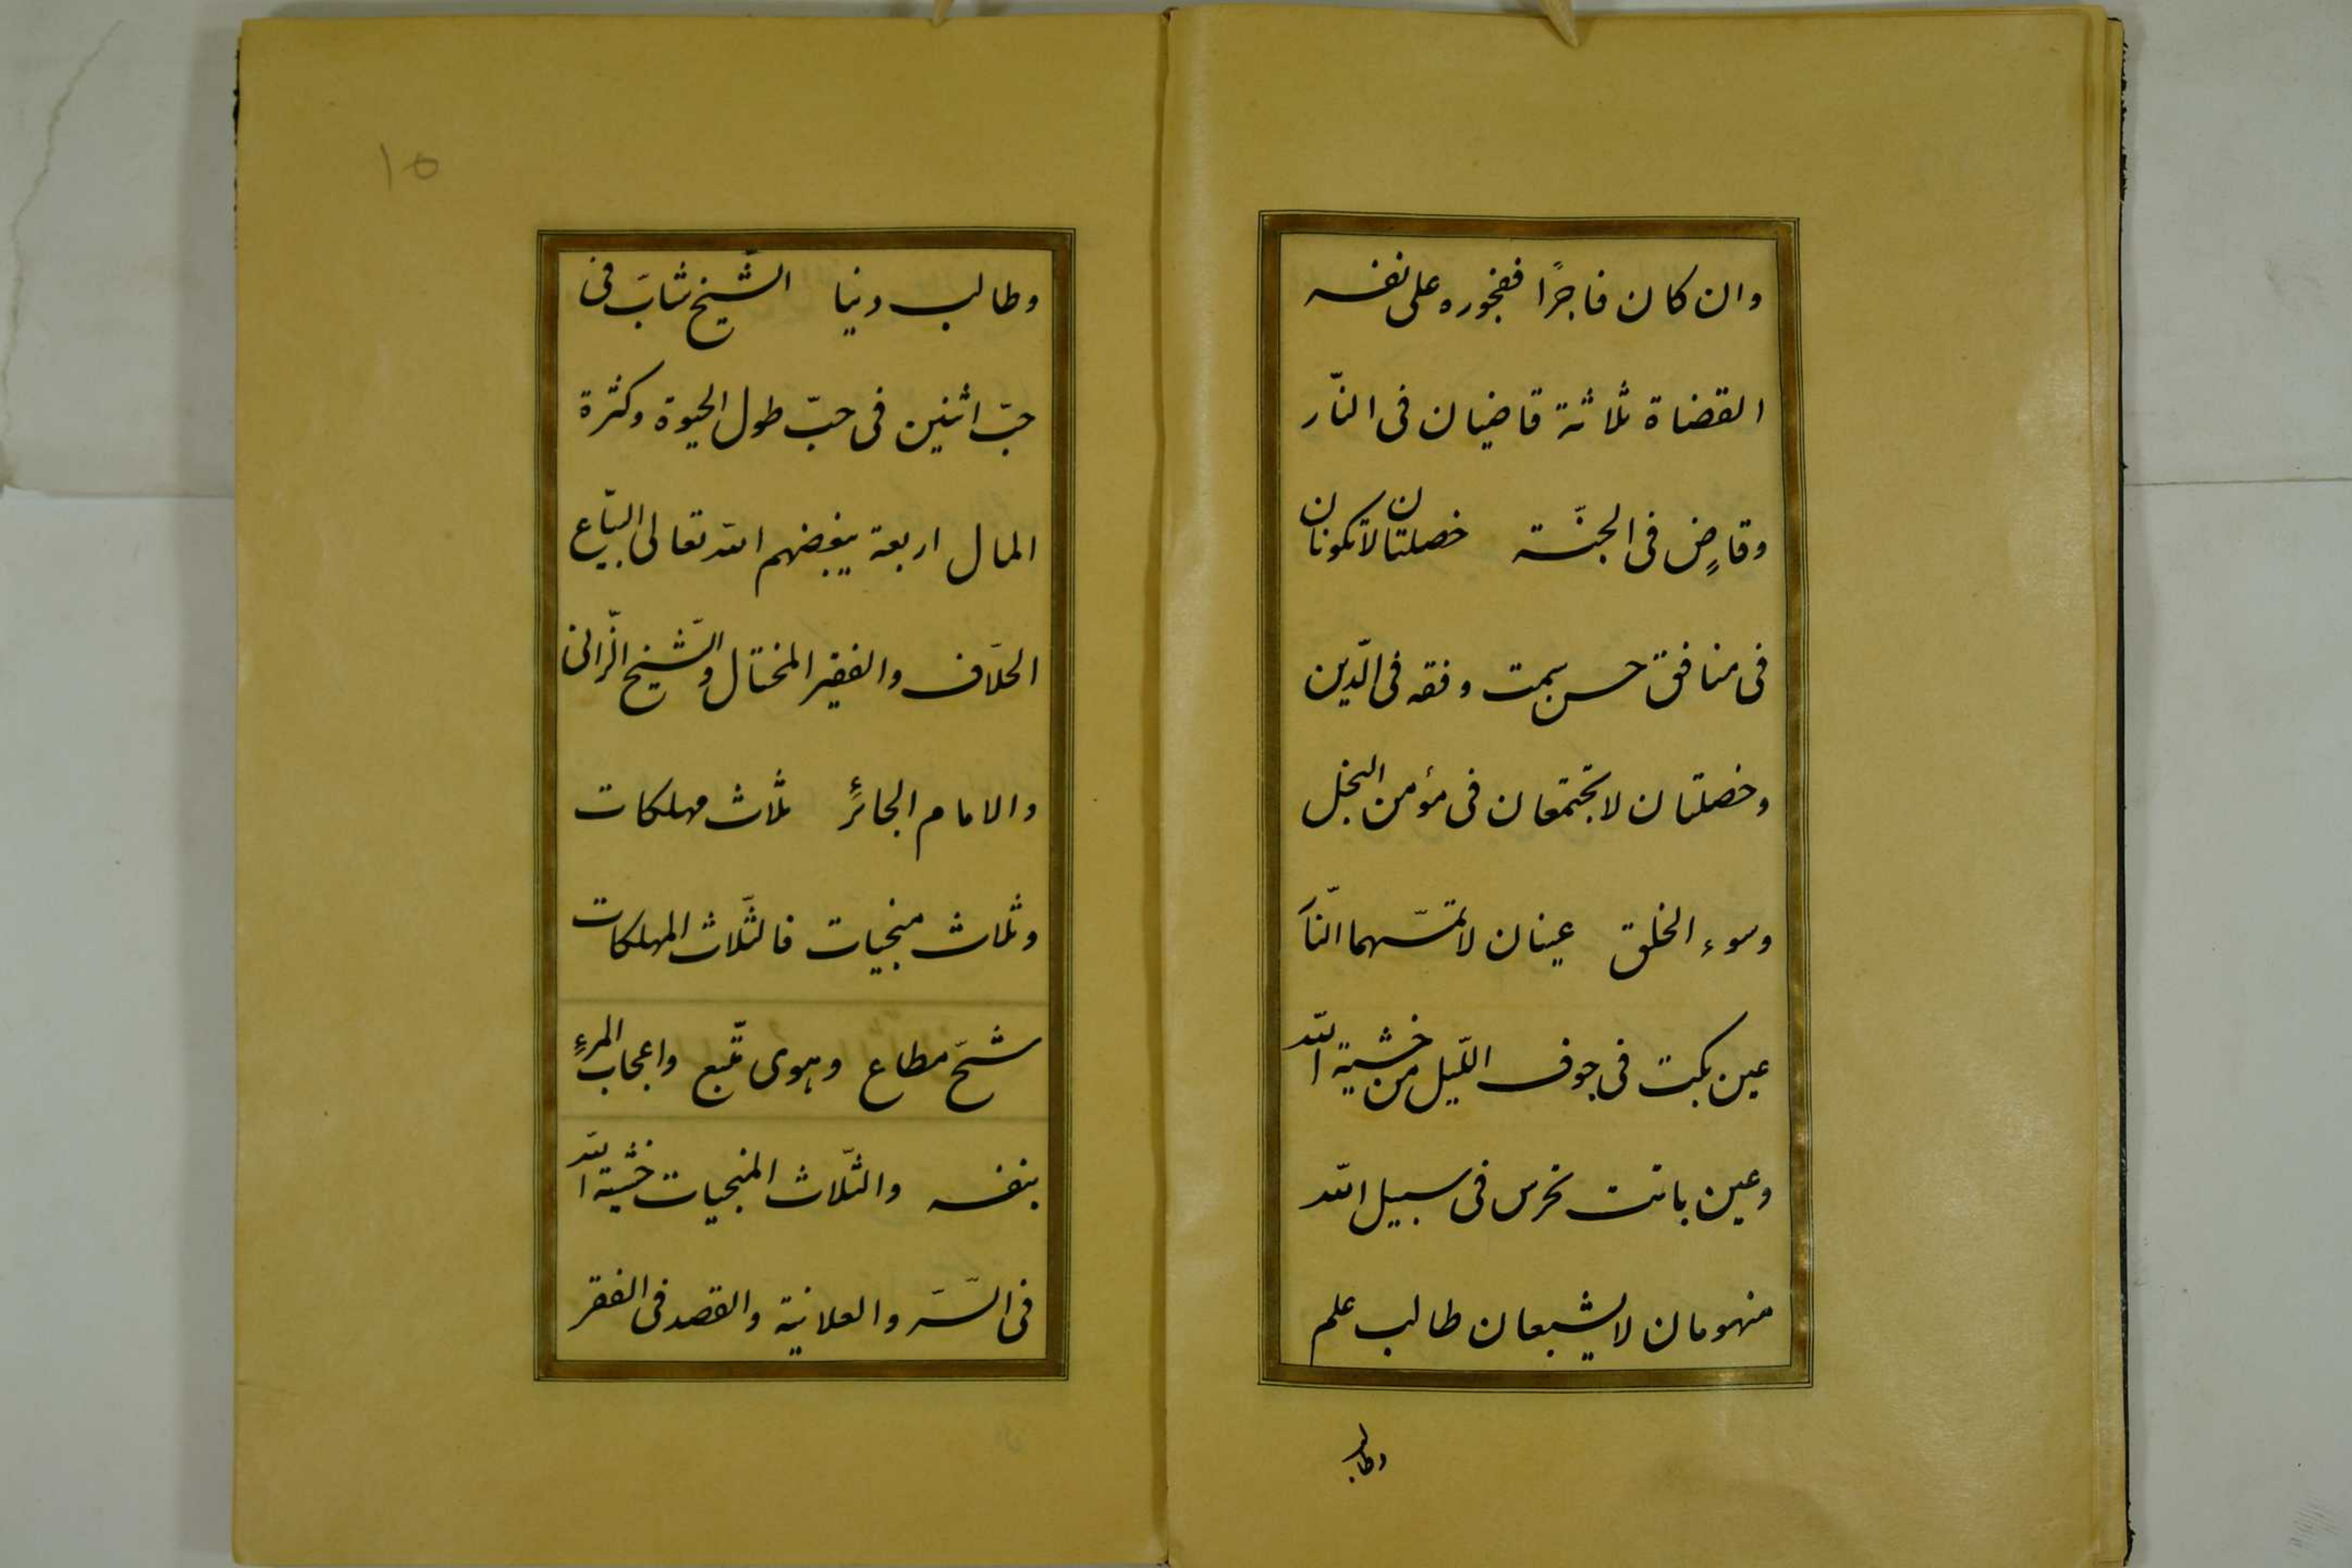 وان كان فاجرًا ففجوره على نفسه
القضاة ثلاثة قاضيان فى النّار
وقاضٍ فى الجنّة خصلتان لاتكونان
فى منافق حسن سمت وفقه فى الدّين
وخصلتان لاتجتمعان فى مؤمن البخل
وسوء الخلق عينان لاتمسّهما النّار
عين بكت فى جوف اللّيل من خشية اللّه
وعين باتت تحرس فى سبيل اللّه
منهومان لايشبعان طالب علم
وطالب
١٥
وطالب دنيا الشّيخ شابّ فى
حبّ اثنين فى حبّ طول الحيوة وكثرة
المال اربعة يبغضهم اللّه تعالى البيّاع
الحلّاف والفقير المختال والشّيخ الزّانى
والامام الجائر ثلاث مهلكات
وثلاث منجيات فالثّلاث المهلكات
شحّ مطاع وهوى متّبع واعجاب المرءِ
بنفسه والثّلاث المنجيات خشية اللّه
فى السّرّ والعلانية والقصد فى الفقر